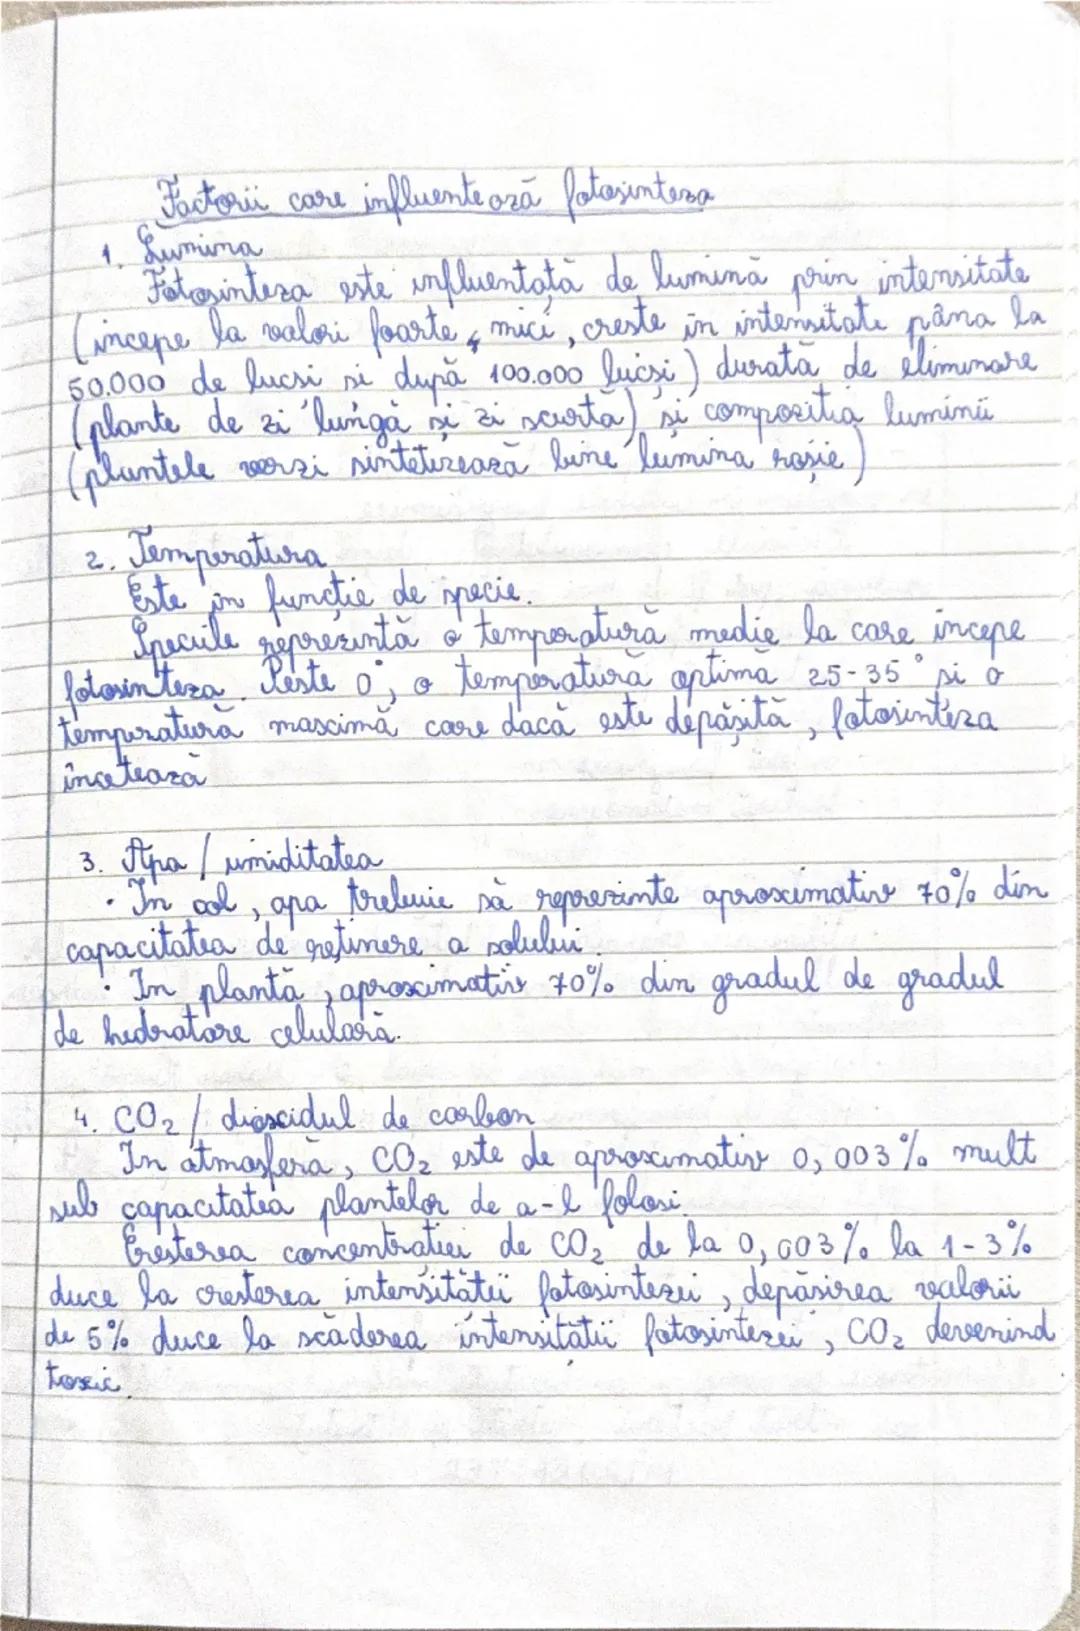 Factorii care influentează fotosinteza
1. Lumina
Fotosinteza este influentată de lumină prin intensitate
(incepe la valori foarte mici, creste in intensitate pâna la
50.000 de lucsi si după 100.000 lucsi) durată de eliminare
(plante de zi lungă si zi scurtă) si compozitia luminii
(plantele verzi sintetizează bine lumina rosie)
2. Temperatura
Este in funcție de specie.
Speciile reprezintă o temperatură medie la care incepe
fotosinteza. Peste 0°, o temperatură optimă 25-35° si o
temperatură maximă care dacă este depășită, fotosinteza
încetează
3. Apa / umiditatea
· In sol, apa trebuie să reprezinte aproximativ 70% din
capacitatea de reținere a solului.
· In plantă, aproximativ 70% din gradul de gradul
de hidratare celulară.
4. CO2 / dioxidul de carbon
In atmosferă, CO2 este de aproximativ 0,003% mult
sub capacitatea plantelor de a-l folosi.
Cresterea concentratiei de CO2 de la 0,003% la 1-3%
duce la cresterea intensitătii fotosintezei, depăsirea valorii
de 5% duce la scăderea intensitătii fotosintezei, CO2 devenind
toxic.